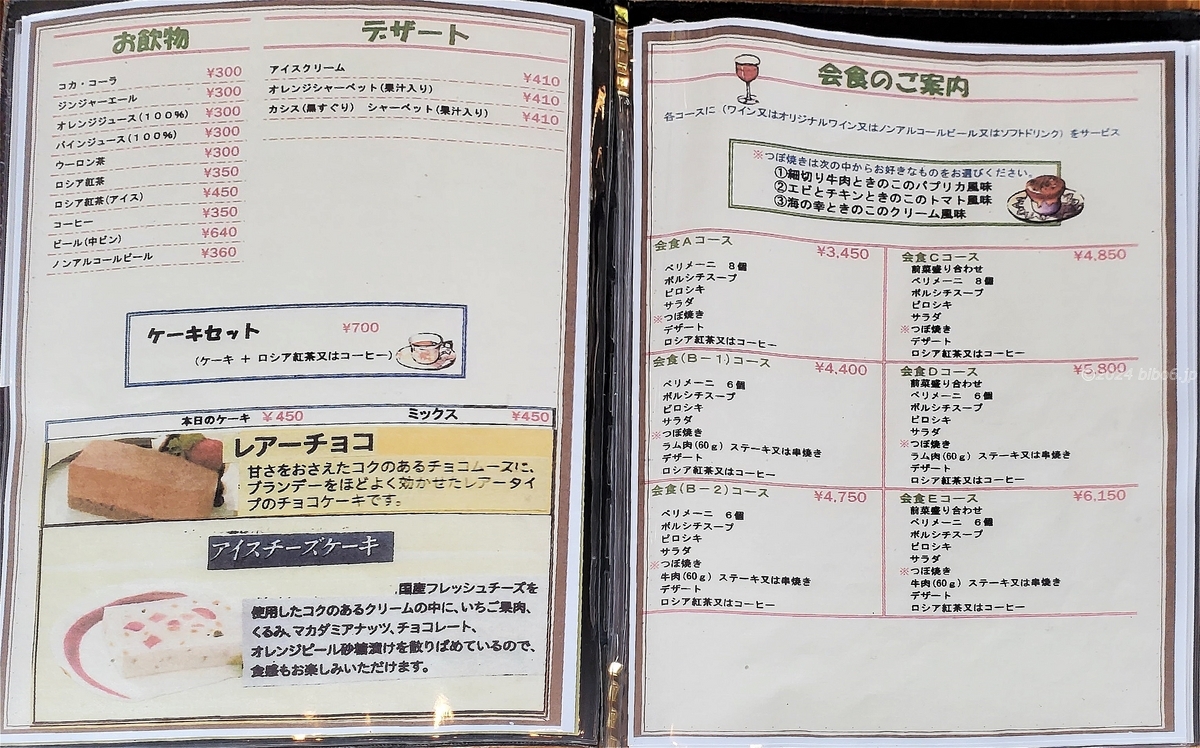 お飲物
コカ・コーラ ¥300
ジンジャーエール ¥300
オレンジジュース(100%) ¥300
パインジュース(100%) ¥300
ウーロン茶 ¥300
ロシア紅茶 ¥350
ロシア紅茶(アイス) ¥450
コーヒー ¥350
ビール(中ビン) ¥640
ノンアルコールビール ¥360
デザート
アイスクリーム ¥410
オレンジシャーベット(果汁入り) ¥410
カシス(黒すぐり) シャーベット(果汁入り) ¥410
ケーキセット ¥700
(ケーキ + ロシア紅茶又はコーヒー)
本日のケーキ ¥450 ミックス ¥450
レアーチョコ
甘さをおさえたコクのあるチョコムースに、
ブランデーをほどよく効かせたレアータイ
プのチョコケーキです。
アイスチーズケーキ
国産フレッシュチーズを
使用したコクのあるクリームの中に、いちご果肉、
くるみ、マカダミアナッツ、チョコレート、
オレンジピール砂糖漬けを散りばめているので、
食感もお楽しみいただけます。
会食のご案内
各コースに(ワイン又はオリジナルワイン又はノンアルコールビール又はソフトドリンク)をサービス
※つぼ焼きは次の中からお好きなものをお選びください。
①細切り牛肉ときのこのパプリカ風味
②エビとチキンときのこのトマト風味
③海の幸ときのこのクリーム風味
会食Aコース ¥3,450
ペリメーニ 8個
ボルシチスープ
ピロシキ
サラダ
※つぼ焼き
デザート
ロシア紅茶又はコーヒー
会食(B-1)コース ¥4,400
ペリメーニ 6個
ボルシチスープ
ピロシキ
サラダ
※つぼ焼き
ラム肉(60g) ステーキ又は串焼き
デザート
ロシア紅茶又はコーヒー
会食(B-2)コース ¥4,750
ペリメーニ 6個
ボルシチスープ
ピロシキ
サラダ
※つぼ焼き
牛肉(60g) ステーキ又は串焼き
デザート
ロシア紅茶又はコーヒー
会食Cコース ¥4,850
前菜盛り合わせ
ペリメーニ 8個
ボルシチスープ
ピロシキ
サラダ
※つぼ焼き
デザート
ロシア紅茶又はコーヒー
会食Dコース ¥5,800
前菜盛り合わせ
ペリメーニ 6個
ボルシチスープ
ピロシキ
サラダ
※つぼ焼き
ラム肉(60g) ステーキ又は串焼き
デザート
ロシア紅茶又はコーヒー
会食Eコース ¥6,150
前菜盛り合わせ
ペリメーニ 6個
ボルシチスープ
ピロシキ
サラダ
※つぼ焼き
牛肉(60g) ステーキ又は串焼き
デザート
ロシア紅茶又はコーヒー
©2024 bibo6.jp